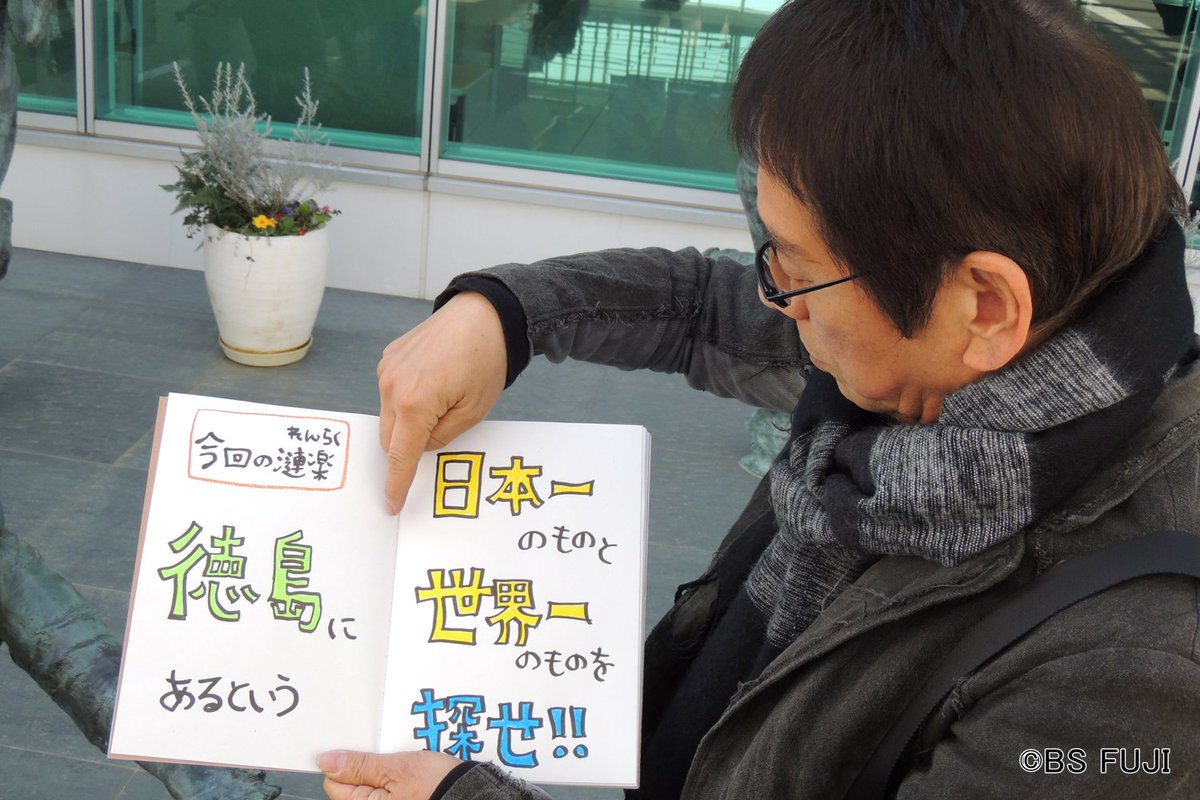 れんらく
今回の漣楽
徳島に
あるという
日本一
のものと
世界一
のものを
探せ!!
©BS FUJI